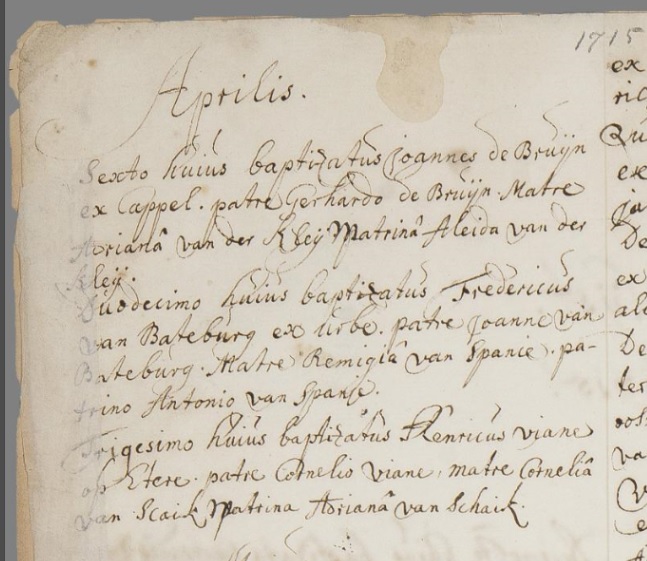 1715
Aprilis.
Sexto huius baptizatus Joannes de Bruijn
ex Cappel. patre Gerhardo de Bruijn. Matre
Adrianâ van der Kleij Matrinâ Aleida van der
Kleij.
Duodecimo huius baptizatus Fredericus
van Bateburg ex urbe. patre Joanne van
Bateburg. Matre Remigiâ van Spanie. pa-
trino Antonio van Spanje.
Trigesimo huius baptizatus Henricus viane
op Etere. patre Cornelio viane, matre Corneliâ
van Scaik Matrina Adrianâ van Schaik.
ex
Qu
exe
ja
De
ex
De
ter
va